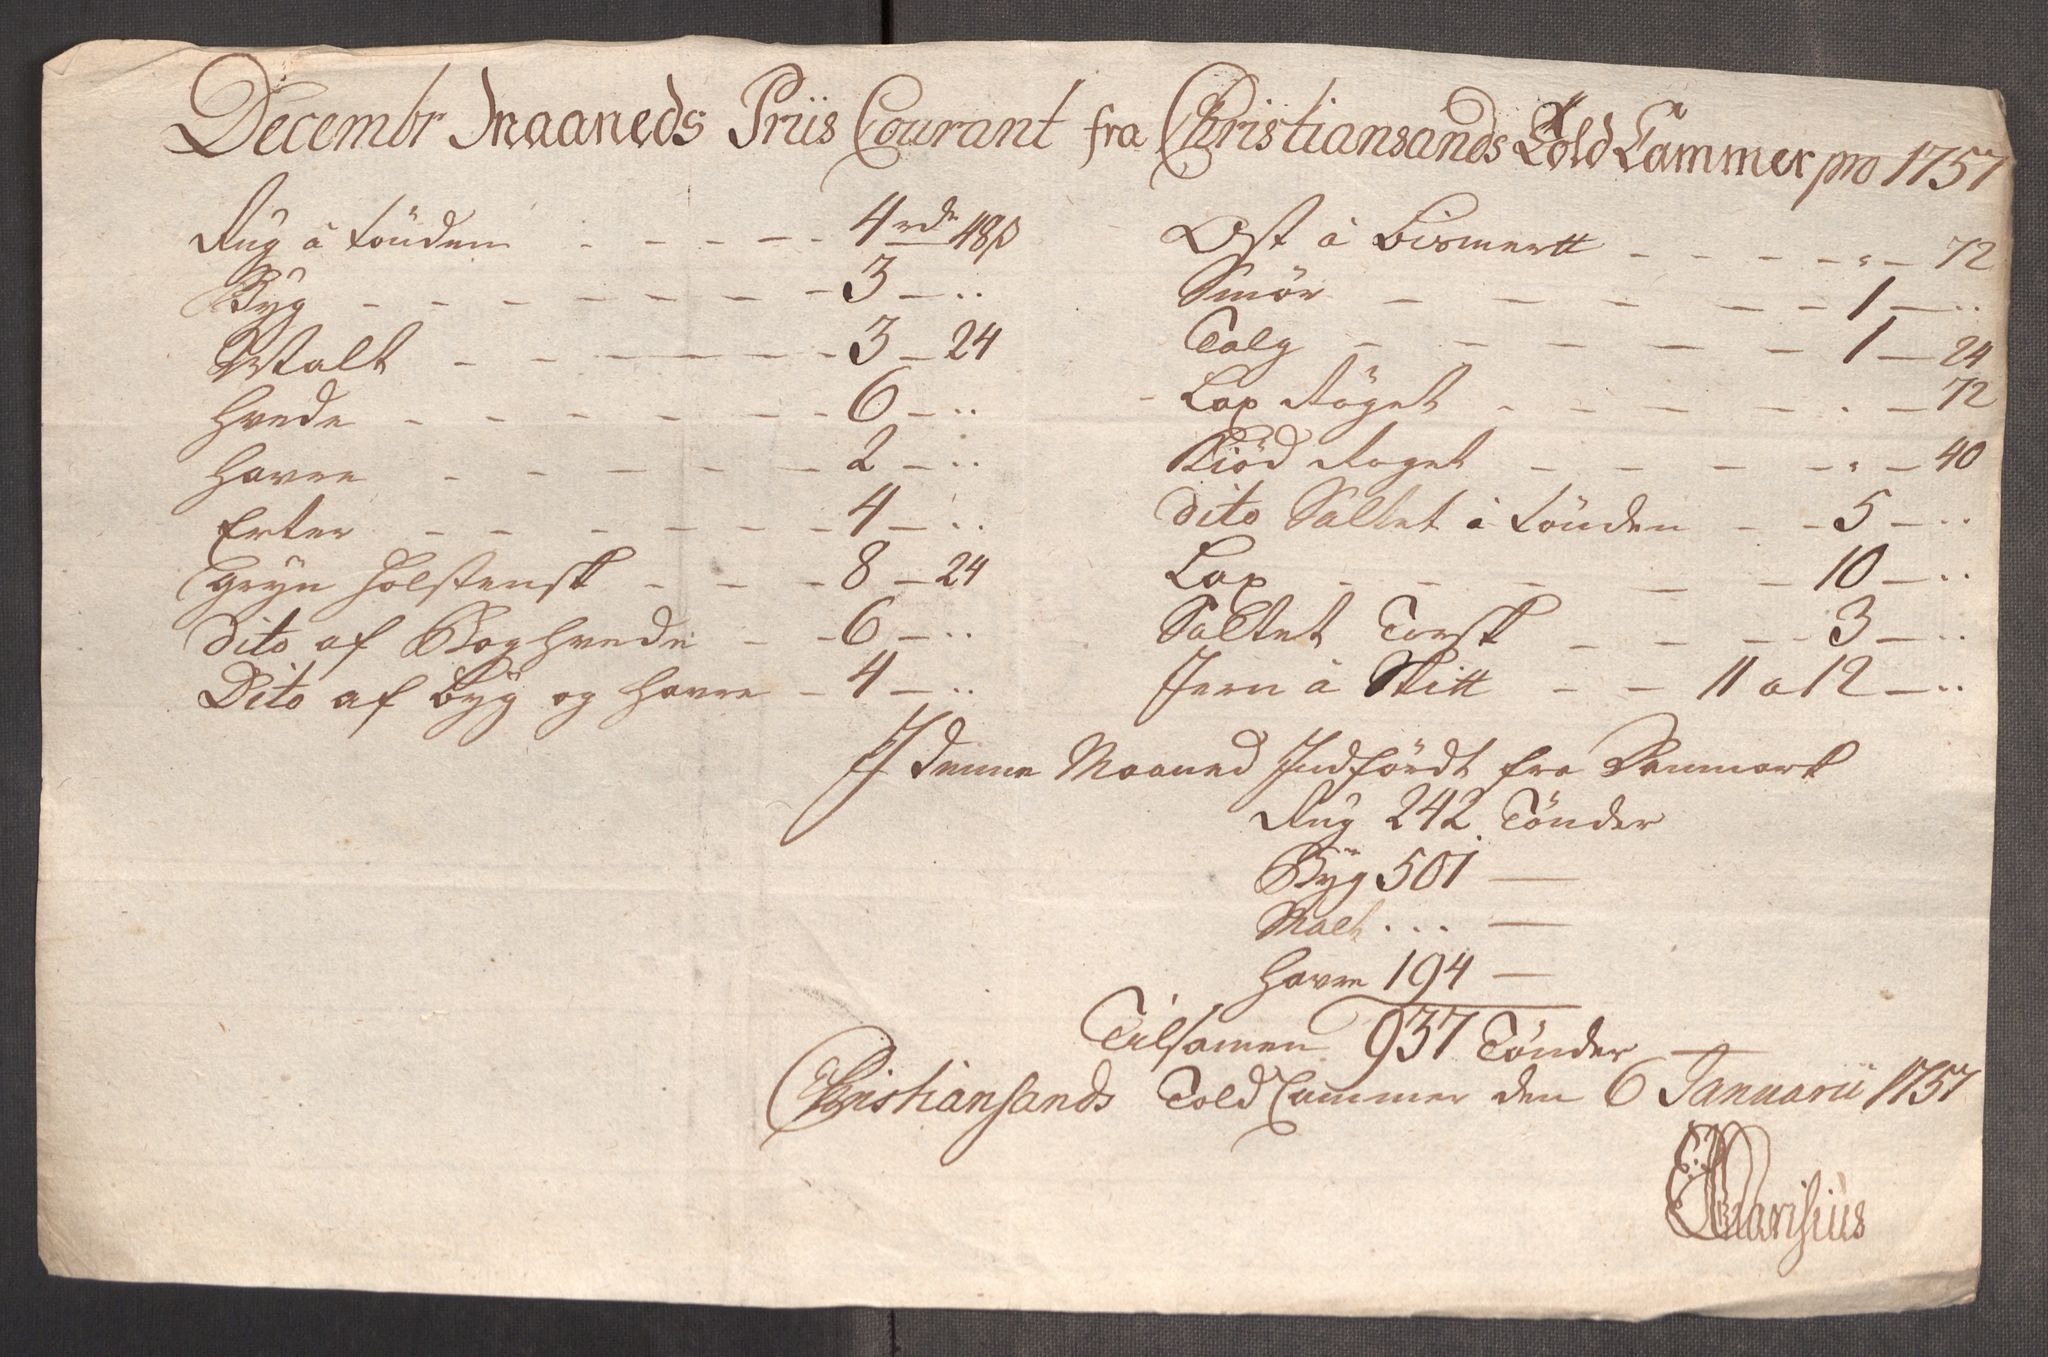 Decembr Maaneds Priis Courant fra Christiansands Told Cammer pro 1757
Rug â tönden - - - - 4 rdr 48 ß
Byg - - - - - - - 3 - ..
Malt - - - - - - 3 - 24
Hvede - - - - - - 6 - ..
Havre - - - - - - 2 - ..
Erter - - - - - - 4 - ..
Gryn Holstensk - - - 8 - 24
Dito af Boghvede - - 6 - ..
Dito af byg og havre - 4 - ..
Ost â Bismertt - - - - - 72
Smör - - - - - - 1 - ..
Talg - - - - - - 1 - 24
Lax Röget - - - - - . - 72
Kiöd Röget - - - - - 40
Dito Saltet â tönden - - 5 - ..
Lax - - - - - - 10 - ..
Saltet Torsk - - - - 3 - ..
Jern â Skitt - - 11 a 12 - ..
J denne Maaned Jndfördt fra Danmark
Rug 242 Tönder
Byg 501 —
Malt . . . —
Havre 194 —
Tilsamen 937 Tönder
Christiansands Told Cammer den 6 Januarii 1757